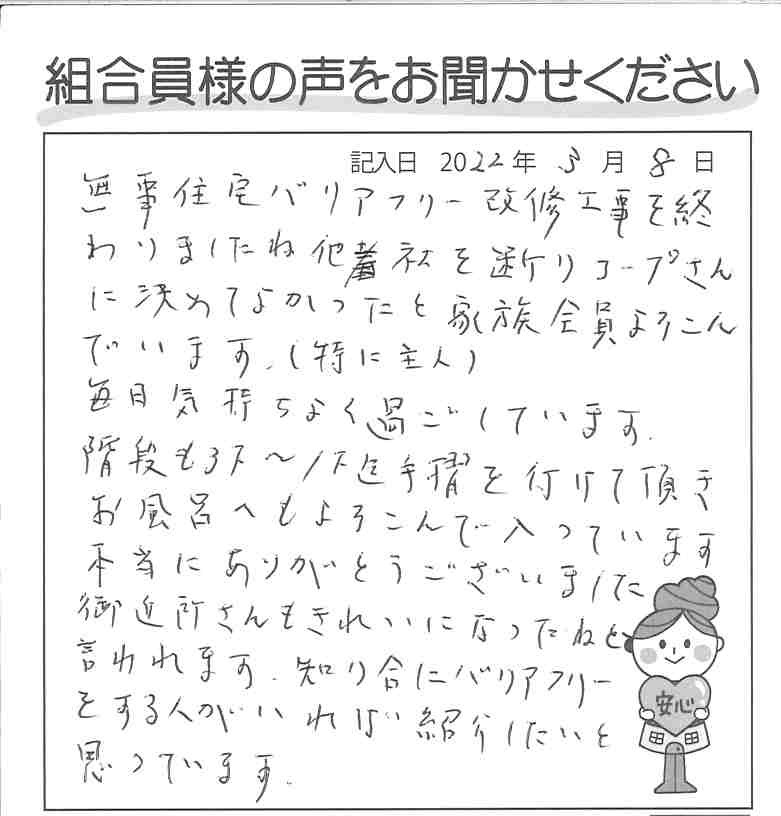 組合員様の声をお聞かせください
記入日 2022年 3月 8日
無事住宅バリアフリー改修工事を終
わりましたね他業社を断りコープさん
に決めてよかったと家族全員よろこん
でいます。(特に主人)
毎日気持ちよく過ごしています。
階段も3F～1F迄手摺を付けて頂き
お風呂へもよろこんで入っています
本当にありがとうございました
御近所さんもきれいになったねと
言われます。知り合にバリアフリー
をする人がいれば紹介したいと
思っています。
安心